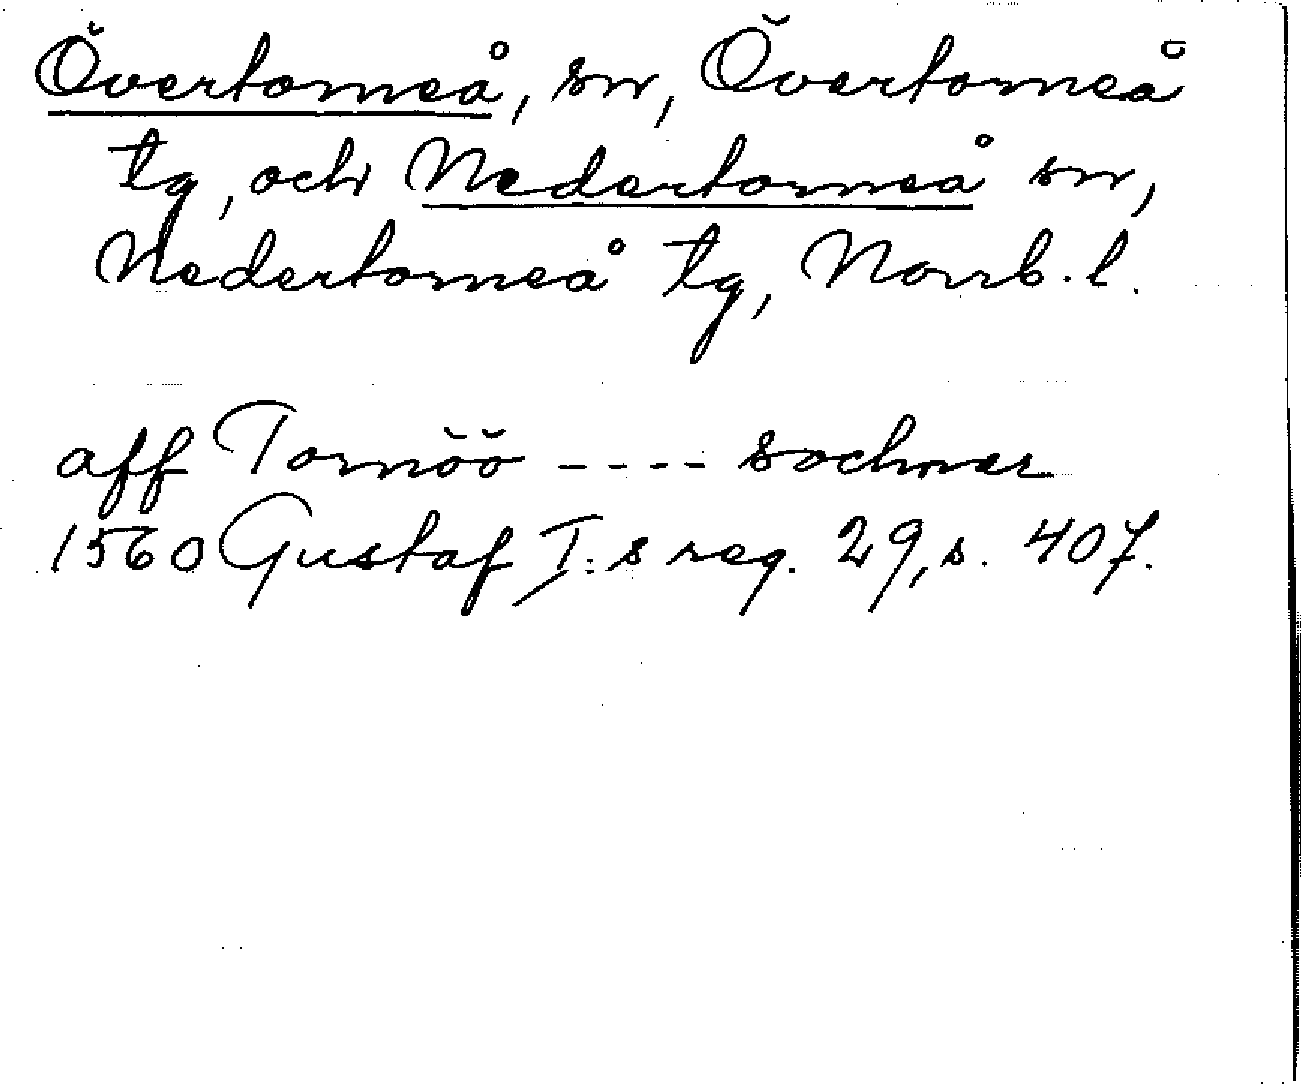 Övertorneå, sn, Övertorneå
tg, och Nedertorneå sn,
Nedertorneå tg, Norrb. l.
aff Tornöö ---- sochner
1560 Gustaf I:s reg. 29, s. 407.